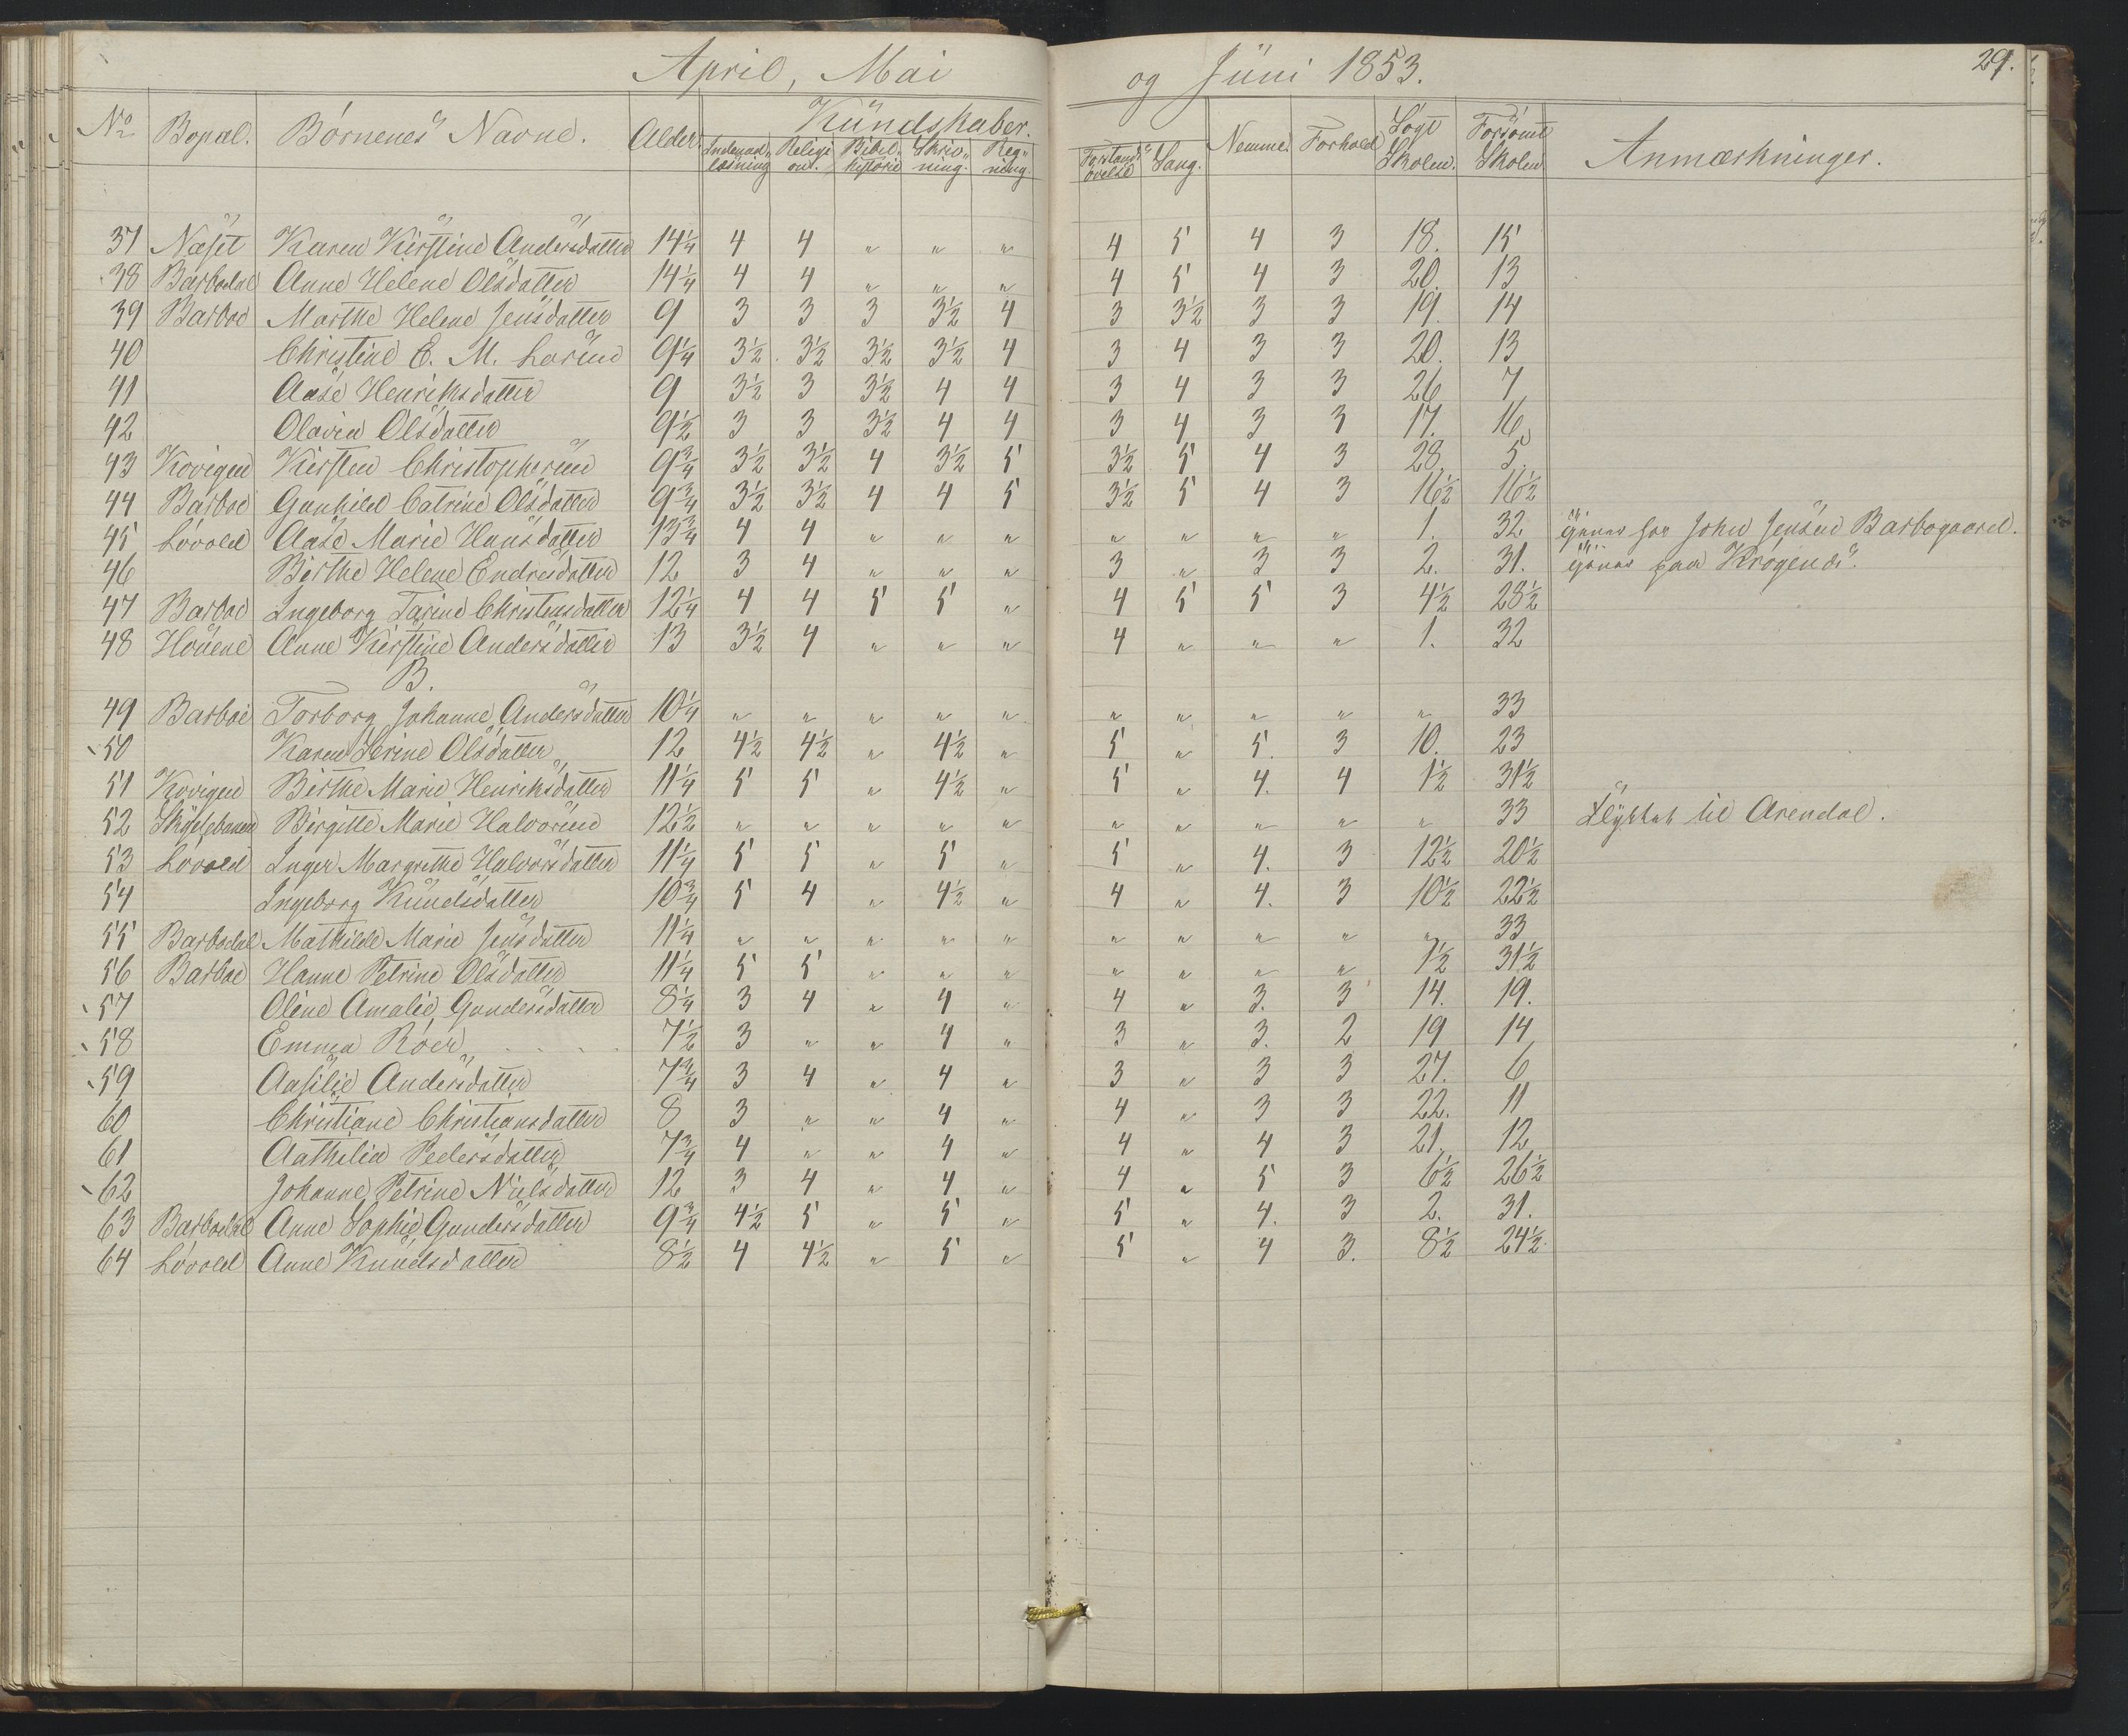 April, Mai og Juni 1853. 29.
No Bopæl. Børnenes Navne. Alder. Kundskaber. Nemme. Forhold Søgt Skolen. Forsømt Skolen Anmærkninger.
Indenadlæsning Religion. Bibelhistorie Skrivning. Regning Forstandsøvelse Sang.
37 Næset Karen Kirstine Andersdatter 14¼ 4 4 " " " 4 5 4 3 18. 15
38 Barbodal Anne Helene Olsdatter 14¼ 4 4 " " " 4 5 4 3 20. 13
39 Barboe Marthe Helene Jensdatter 9 3 3 3 3½ 4 3 3½ 3 3 19. 14
40 Christine E. M. 9¼ 3½ 3½ 3½ 3½ 4 3 4 3 3 20. 13
41 Aase Henriksdatter 9 3½ 3 3½ 4 4 3 4 3 3 26 7
42 Olavia Olsdatter 9½ 3 3 3½ 4 4 3 4 3 3 17. 16
43 Kovigen Kirsten Christophersen 9¾ 3½ 3½ 4 3½ 5 3½ 5 4 3 28. 5.
44 Barboe Gunhild Catrine Olsdatter 9¾ 3½ 3½ 4 4 5 3½ 5 4 3 16½ 16½
45 Løvold Aase Marie Hansdatter 13¾ 4 4 " " " " " " " 1. 32 tjener hos John Jensen Barbogaard.
46 Birthe Helene Endresdatter 12 3 4 " " " 3 " 3 3 2. 31. tjener paa Krøgenes.
47 Barboe Ingeborg Tarine Christensdatter 12¼ 4 4 5 5 " 4 5 5 3 4½ 28½
48 Houene Anne Kirstine Andersdatter 13 3½ 4 " " " 4 " " " 1. 32
B.
49 Barboe Torborg Johanne Andersdatter 10¼ " " " " " " " " " " 33
50 Karen Serine Olsdatter 12 4½ 4½ " 4½ " 5 " 5. 3 10. 23
51 Kovigen Birthe Marie Henriksdatter 11¼ 5 5 " 4½ " 5 " 4. 4 1½ 31½
52 Skytebanen Birgitte Marie Halvorsen 12½ " " " " " " " " " " 33 Flyttet til Arendal.
53 Løvold Inger Margrethe Halvorsdatter 11¼ 5 5 " 5 " 5 " 4. 3 12½ 20½
54 Ingeborg Knudsdatter 10¾ 5 4 " 4½ " 4 " 4. 3 10½ 22½
55 Barbodal Mathilde Marie Jensdatter 11¼ " " " " " " " " " " 33
56 Barboe Hanne Petrine Olsdatter 11¼ 5 5 " " " " " " " 1½ 31½
57 Oline Amalie Gundersdatter 8¼ 3 4 " 4 " 4 " 3. 3 14. 19.
58 Emma Röer 7½ 3 " " 4 " 3 " 3. 2 19 14
59 Aasilie Andersdatter 7¾ 3 4 " 4 " 3 " 3 3 27. 6
60 Christiane Christiansdatter 8 3 " " 4 " 4 " 3 3 22. 11
61 Aathilia Pedersdatter 7¾ 4 " " 4 " 4 " 4 3 21. 12
62 Johanne Petrine Nielsdatter 12 3 4 " 4 " 4 " 5 3 6½ 26½
63 Barbodal Anne Sophie Gundersdatter 9¾ 4½ 5 " 5 " 5 " 4. 3 2. 31.
64 Løvold Anne Knudsdatter 8½ 4 4½ " 5 " 5 " 4 3. 8½ 24½.